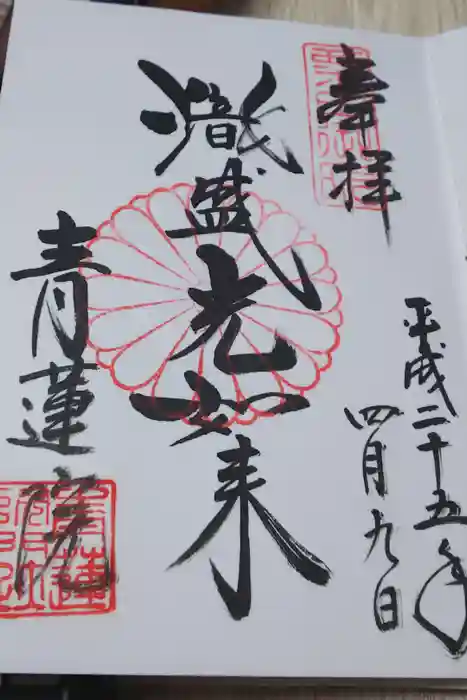 奉拝
平成二十五年
四月九日
熾盛光如来
青蓮院